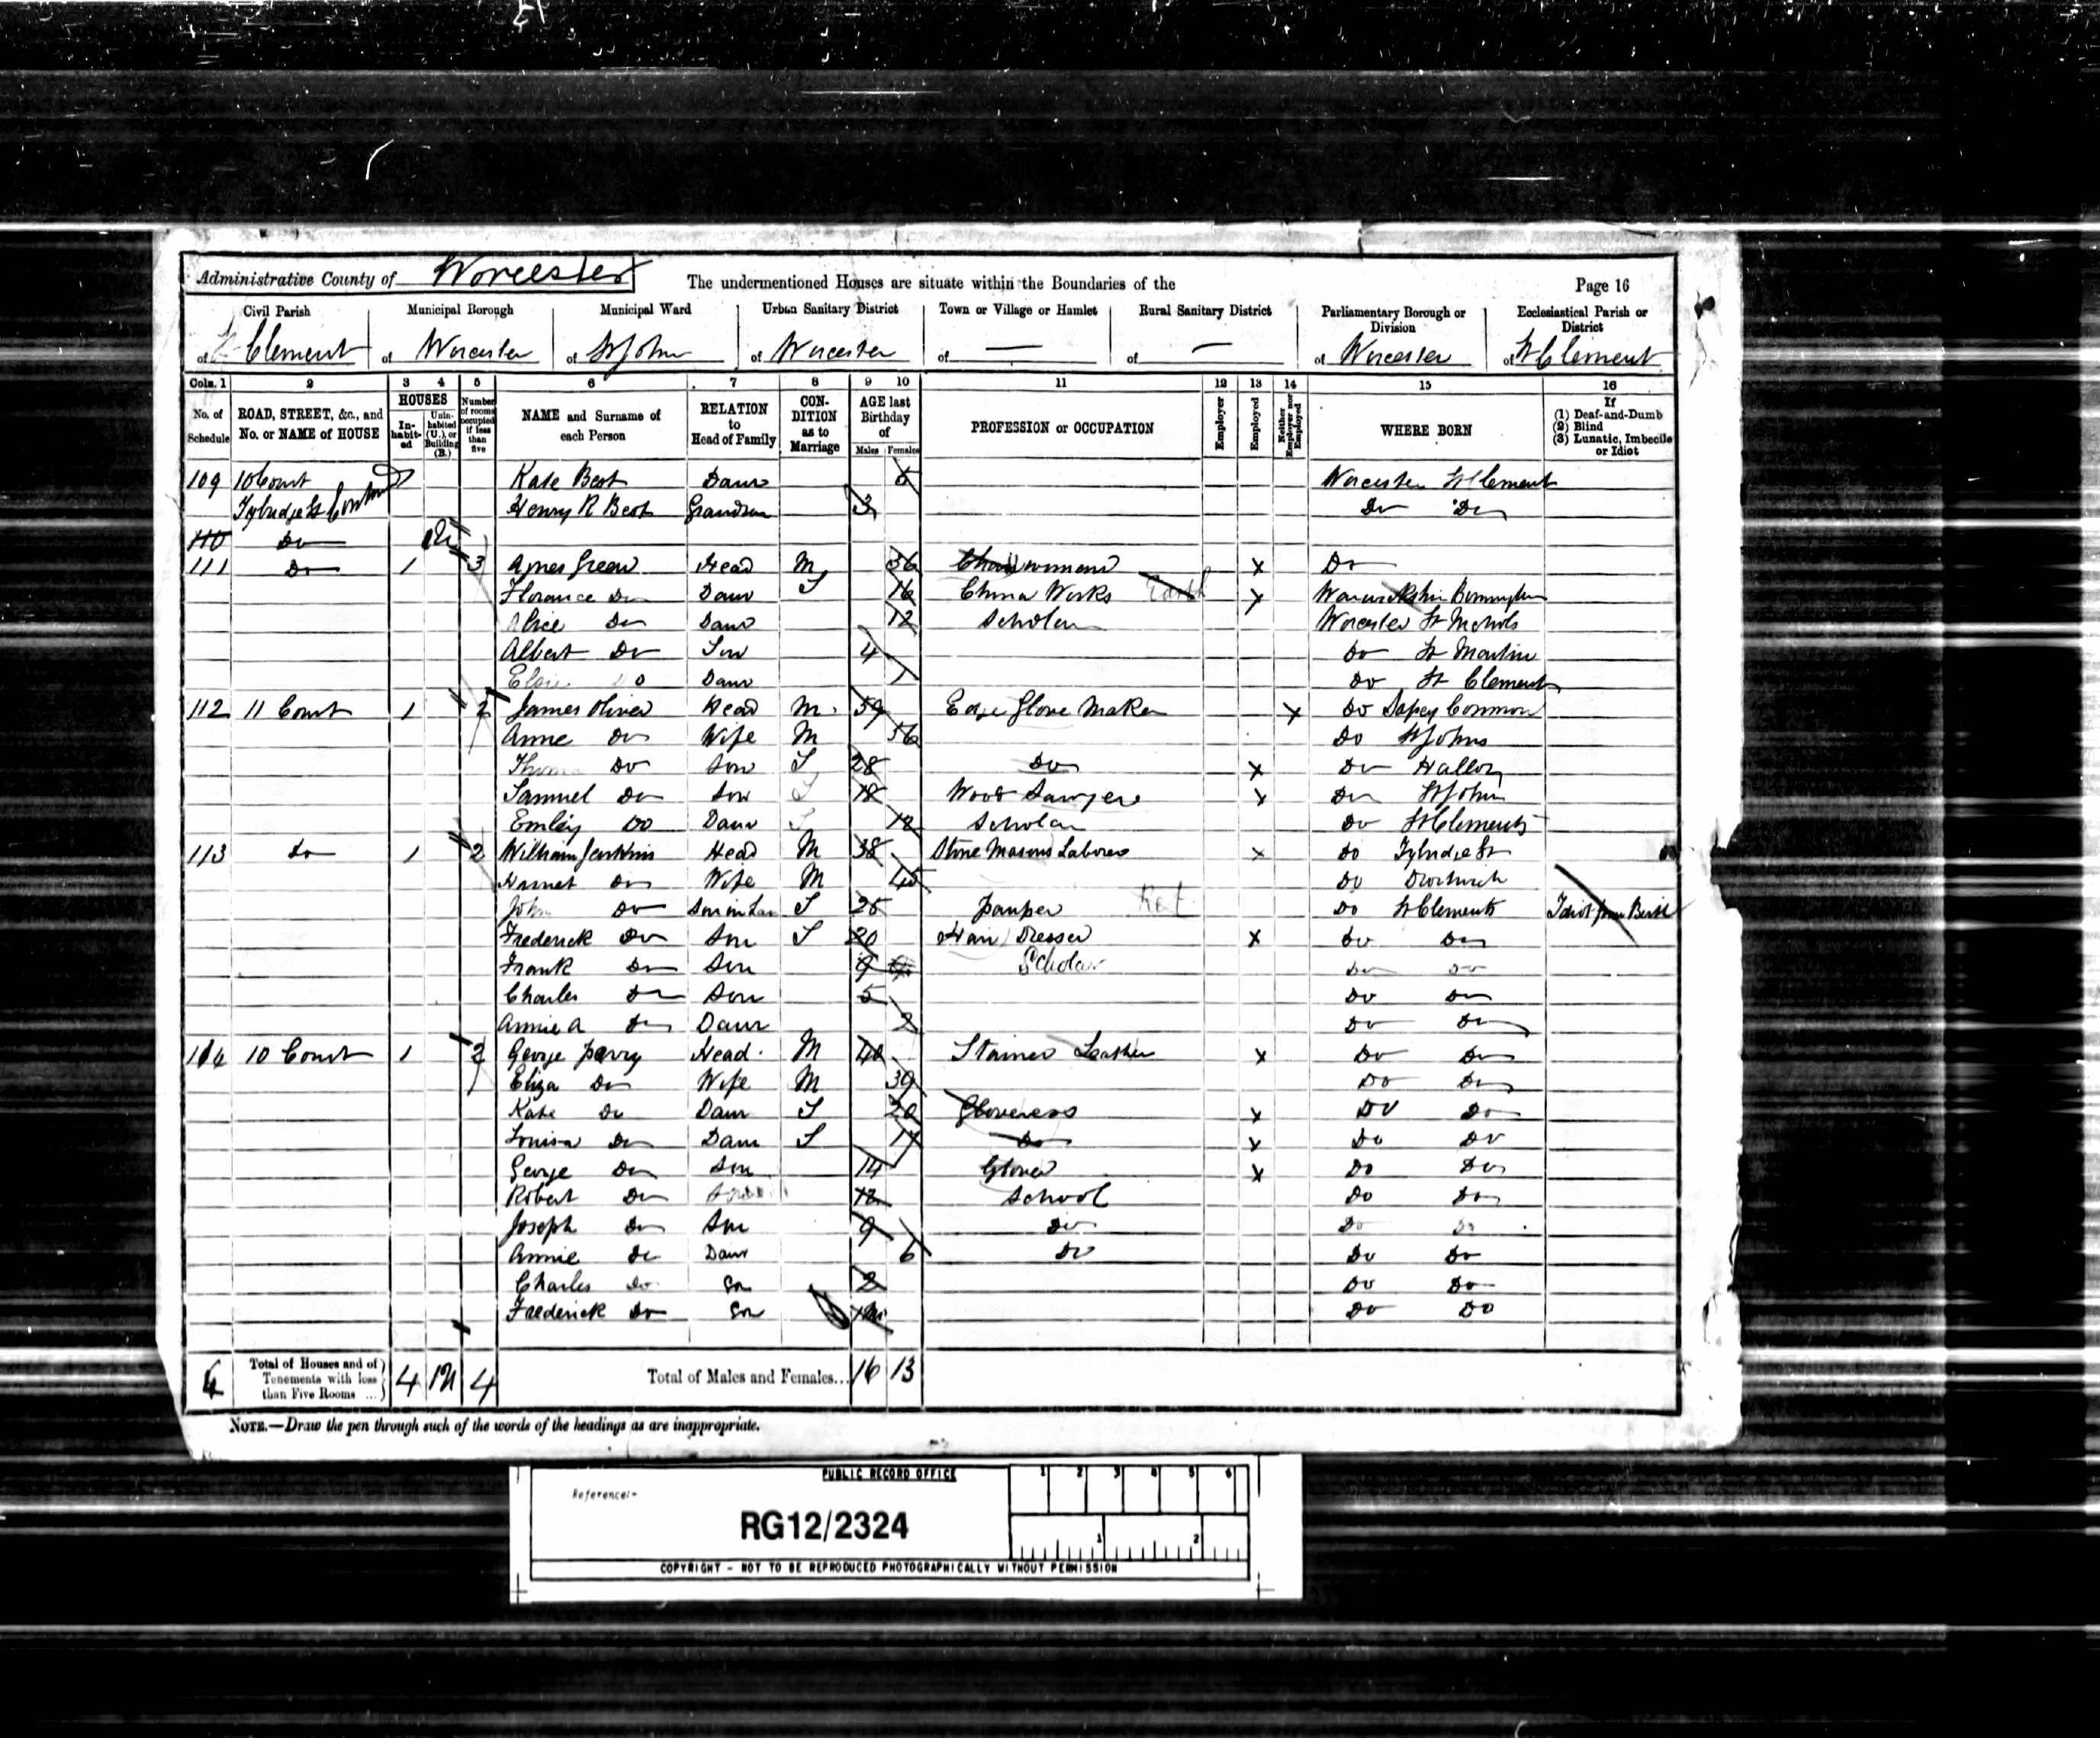 Administrative County of Worcester
The undermentioned Houses are situate within the Boundaries of the
Page 16
Civil Parish
Municipal Borough
Municipal Ward
Urban Sanitary District
Town or Village or Hamlet
Rural Sanitary District
Parliamentary Borough or Division
Ecclesiastical Parish or District
of St Clement
of Worcester
of St John
of Worcester
of —
of —
of Worcester
of St Clement
Cols. 1 2 3 4 5 6 7 8 9 10 11 12 13 14 15 16
No. of Schedule
ROAD, STREET, &c., and No. or NAME of HOUSE
HOUSES
In-habit-ed
Unin-habited (U.), or Building (B.)
Number of rooms occupied if less than five
NAME and Surname of each Person
RELATION to Head of Family
CON-DITION as to Marriage
AGE last Birthday of
Males Females
PROFESSION or OCCUPATION
Employer
Employed
Neither Employer nor Employed
WHERE BORN
If
(1) Deaf-and-Dumb
(2) Blind
(3) Lunatic, Imbecile or Idiot
109 10 Court Kate Best Daur 5 Worcester St Clement
Tybridge St Henry R Best Grandson 3 Do Do
110 Do
111 Do 1 3 Agnes Green Head M 36 Charwoman x Do
Florance Do Daur S 16 China Works x Warwickshire Birmingham
Alice Do Daur 12 Scholar Worcester St Nichols
Albert Do Son 4 Do St Martin
Elsie Do Daur 1 Do St Clement
112 11 Court 1 2 James Oliver Head M 59 Glove Maker x Do Sapey Common
Anne Do Wife M 56 Do St Johns
Do Son S 28 Do x Do Hallow
Samuel Do Son S 18 Wood Sawyer x Do St John
Emley Do Daur S 12 Scholar Do St Clements
113 Do 1 2 William Jenkins Head M 38 Stone Masons Laborer x Do Tybridge St
Harriet Do Wife M 45 Do Droitwich
John Do Son in Law S 25 Pauper Ret Do St Clements Idiot from Birth
Frederick Do Son S 20 Hair Dresser x Do Do
Frank Do Son 9 Scholar Do Do
Charles Do Son 5 Do Do
Annie A Do Daur 2 Do Do
114 10 Court 1 2 George Parry Head M 40 Stainer Leather x Do Do
Eliza Do Wife M 39 Do Do
Kate Do Daur S 20 Gloveress x Do Do
Louisa Do Daur S 17 Do x Do Do
George Do Son 14 Glover x Do Do
Robert Do Son 12 School Do Do
Joseph Do Son 9 Do Do Do
Annie Do Daur 6 Do Do Do
Charles Do Son 2 Do Do
Frederick Do Son Do Do
4 Total of Houses and of Tenements with less than Five Rooms ... 4 4 Total of Males and Females... 16 13
NOTE.—Draw the pen through such of the words of the headings as are inappropriate.
PUBLIC RECORD OFFICE
Reference:-
RG12/2324
1 2 3 4 5 6
1 2
COPYRIGHT - NOT TO BE REPRODUCED PHOTOGRAPHICALLY WITHOUT PERMISSION